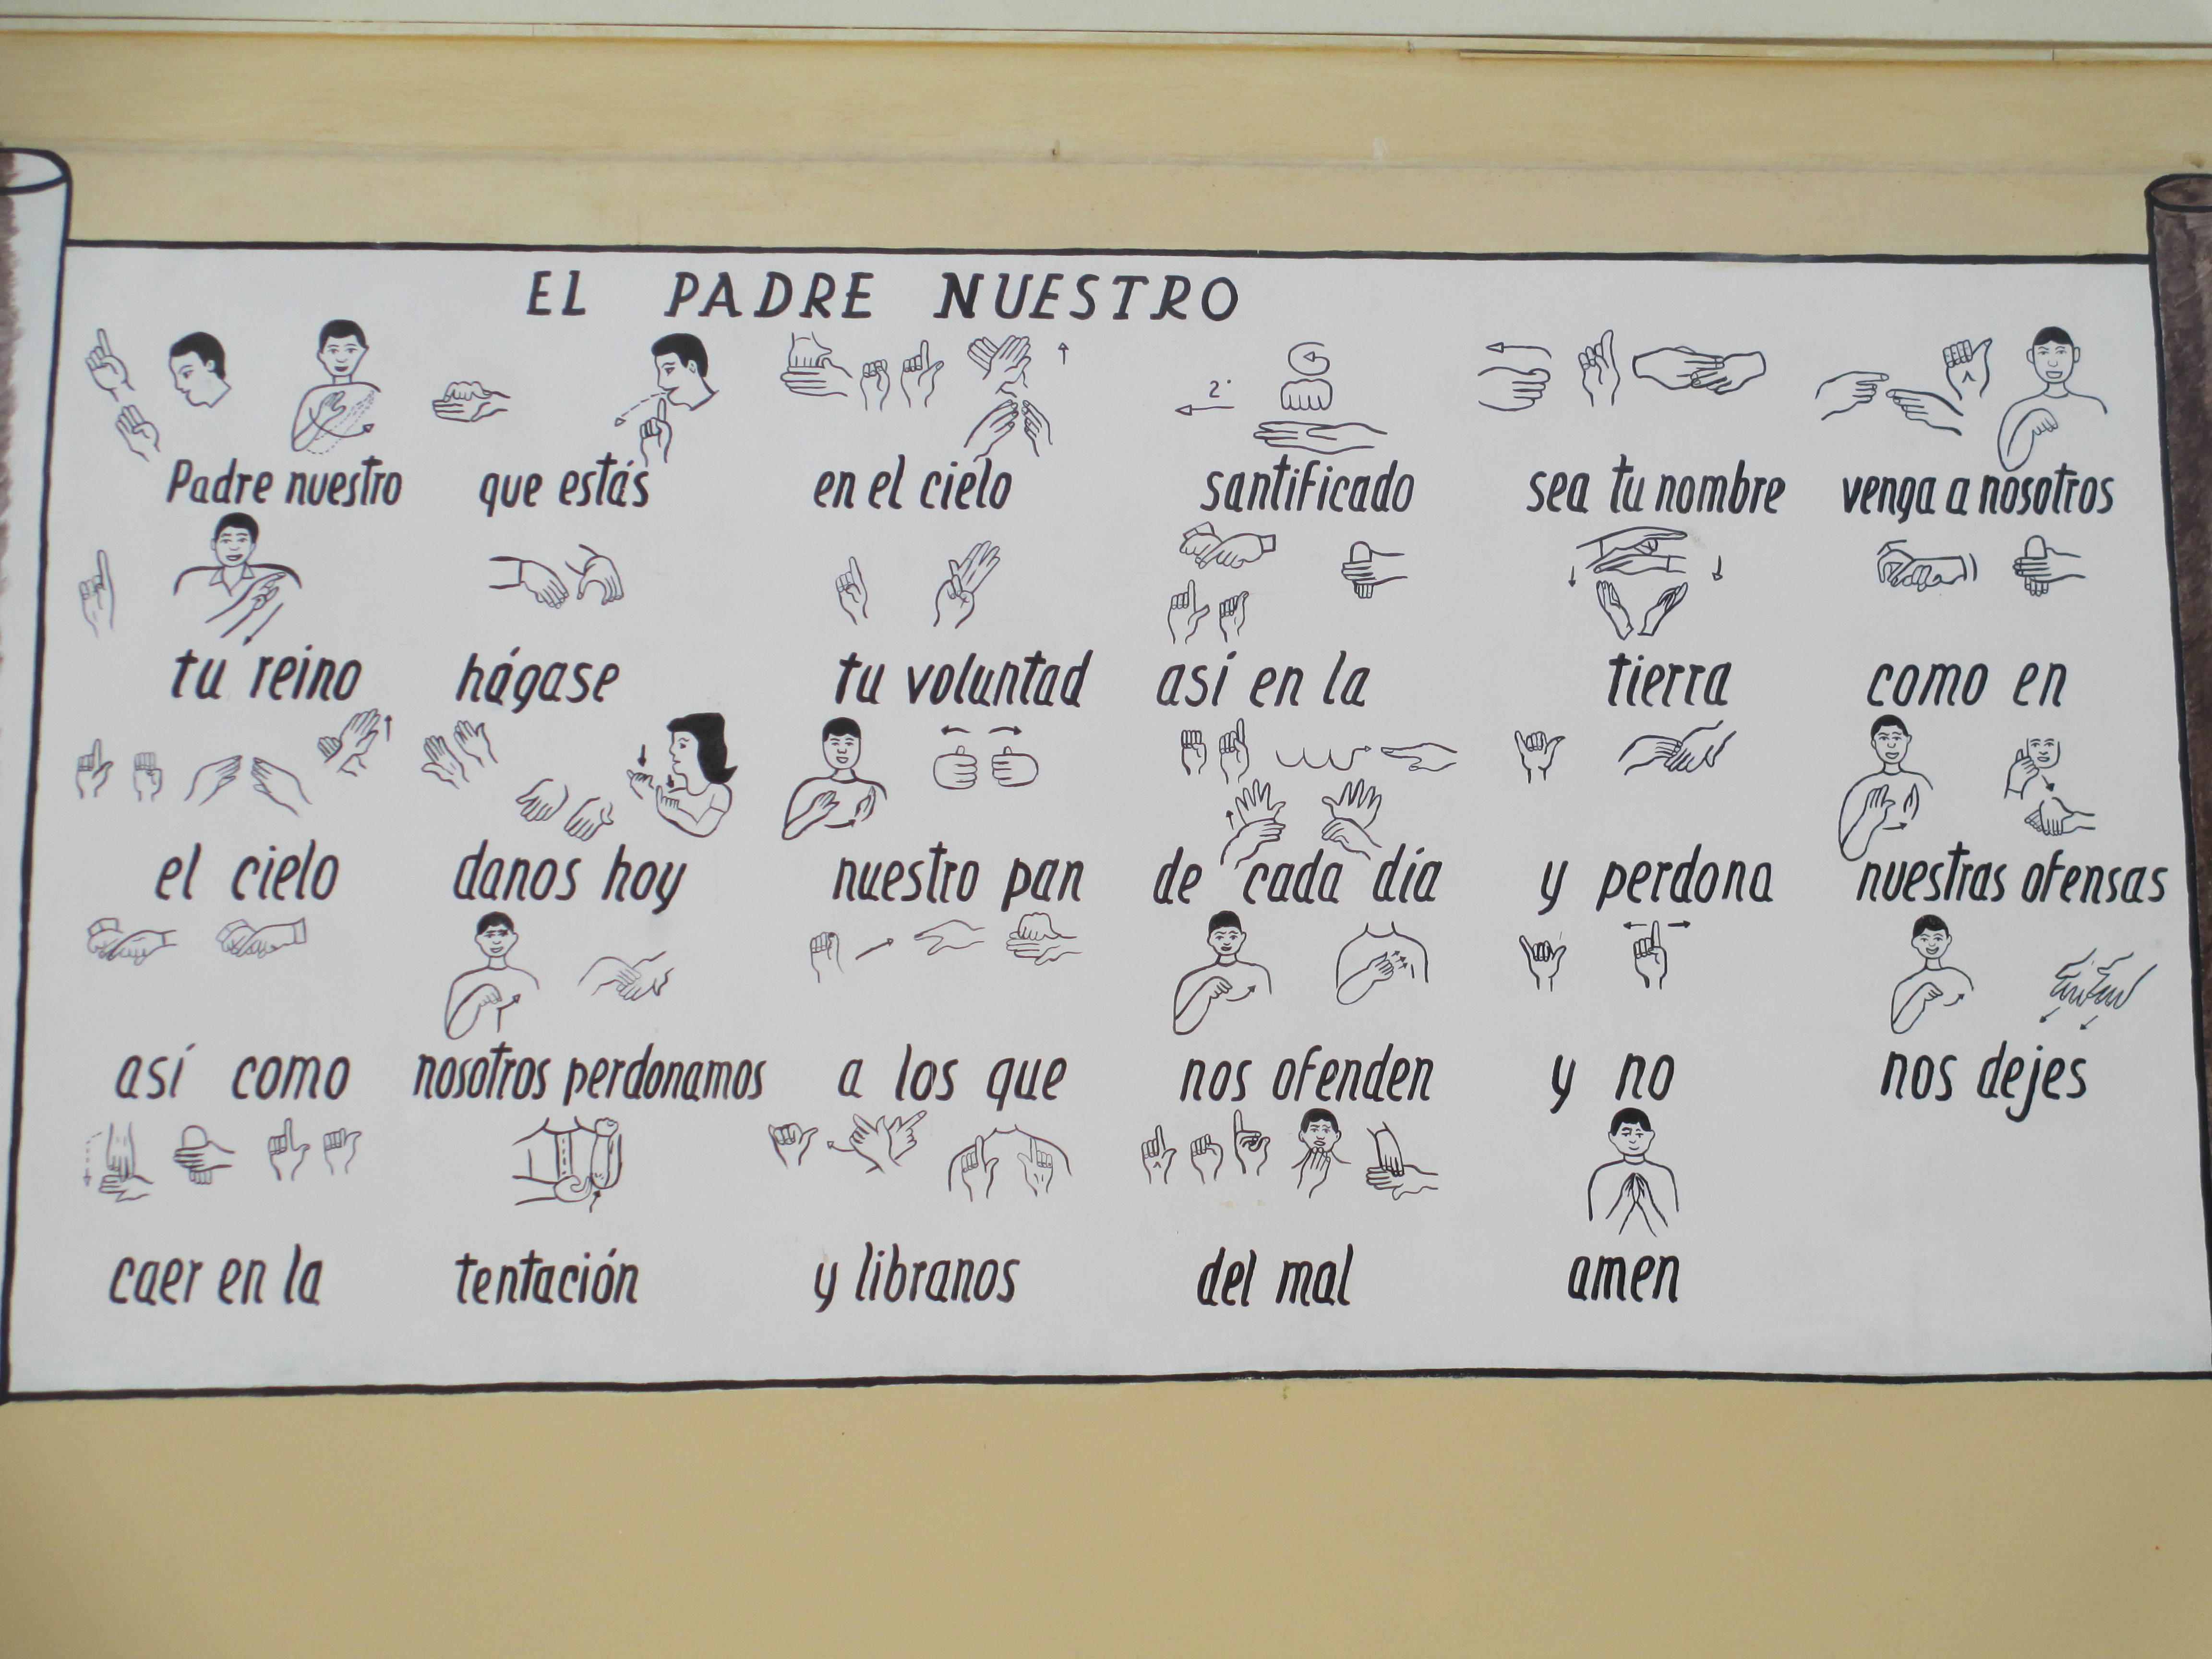 EL PADRE NUESTRO
2'
Padre nuestro que estás en el cielo santificado sea tu nombre venga a nosotros
tu reino hágase tu voluntad así en la tierra como en
el cielo danos hoy nuestro pan de cada día y perdona nuestras ofensas
así como nosotros perdonamos a los que nos ofenden y no nos dejes
caer en la tentación y libranos del mal amen